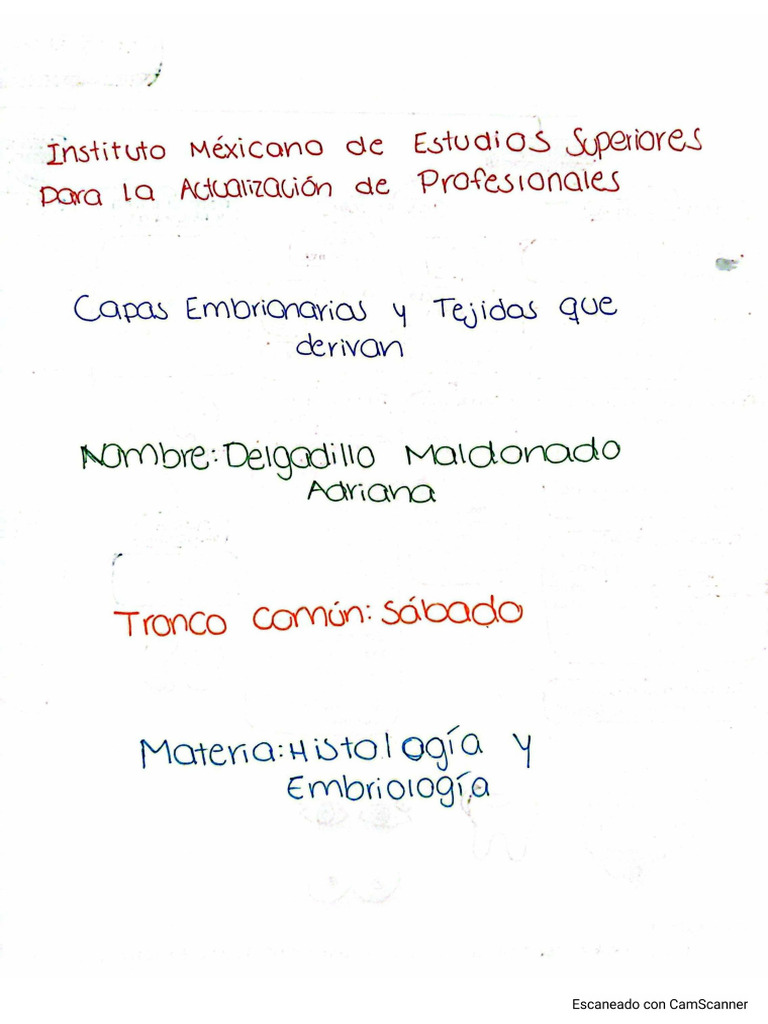 Instituto Méxicano de Estudios Superiores
para la Actualización de Profesionales
Capas Embrionarias y Tejidos que
derivan
Nombre: Delgadillo Maldonado
Adriana
Tronco común: Sábado
Materia: Histología y
Embriología
Escaneado con CamScanner